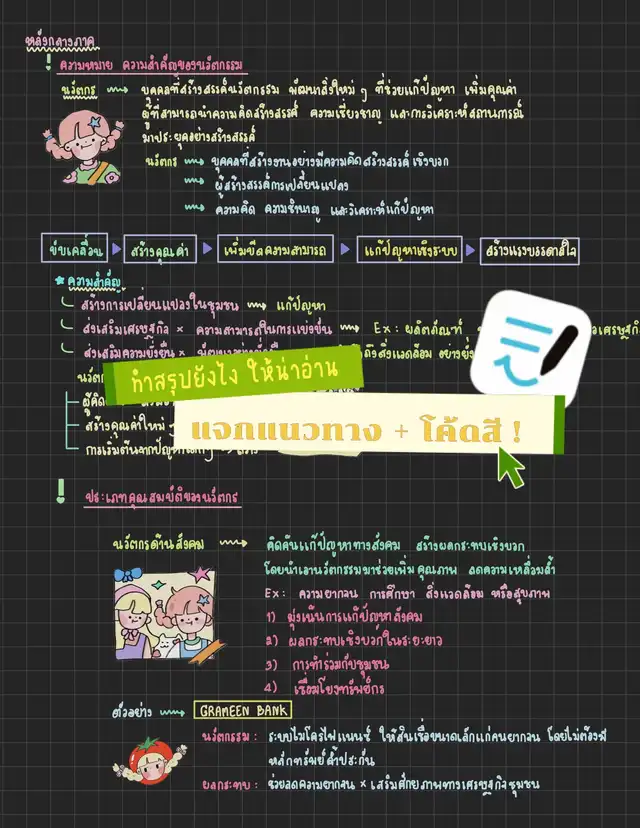 หลังกลางภาค
! ความหมาย ความสำคัญของนวัตกรรม
นวัตกร → บุคคลที่สร้างสรรค์นวัตกรรม พัฒนาสิ่งใหม่ ๆ ที่ช่วยแก้ปัญหา เพิ่มคุณค่า
ผู้ที่สามารถนำความคิดสร้างสรรค์ ความเชี่ยวชาญ และการวิเคราะห์สถานการณ์
มาประยุคอย่างสร้างสรรค์
นวัตกร → บุคคลที่สร้างงานอย่างมีความคิดสร้างสรรค์ เชิงบวก
→ ผู้สร้างสรรค์การเปลี่ยนแปลง
→ ความคิด ความชำนาญ และวิเคราะห์แก้ปัญหา
ขับเคลื่อน สร้างคุณค่า เพิ่มขีดความสามารถ แก้ปัญหาเชิงระบบ สร้างแรงบรรดาลใจ
★ ความสำคัญ
สร้างการเปลี่ยนแปลงในชุมชน → แก้ปัญหา
ส่งเสริมเศรษฐกิจ × ความสามารถในการแข่งขัน → Ex: ผลิตภัณฑ์
ส่งเสริมความยั่งยืน × สิ่งแวดล้อม
นวัตกร
ทำสรุปยังไง ให้น่าอ่าน
สร้างคุณค่าใหม่
แจกแนวทาง + โค้ดสี !
! ประเภทคุณสมบัติของนวัตกร
นวัตกรด้านสังคม → คิดค้นแก้ปัญหาทางสังคม สร้างผลกระทบเชิงบวก
โดยนำเอานวัตกรรมมาช่วยเพิ่มคุณภาพ ลดความเหลื่อมล้ำ
Ex: ความยากจน การศึกษา สิ่งแวดล้อม หรือสุขภาพ
1) มุ่งเน้นการแก้ปัญหาสังคม
2) ผลกระทบเชิงบวกในระยะยาว
3) การทำร่วมกับชุมชน
4) เชื่อมโยงทรัพย์กร
ตัวอย่าง → GRAMEEN BANK
นวัตกรรม : ระบบไมโครไฟแนนซ์ ให้สินเชื่อขนาดเล็กแก่คนยากจน โดยไม่ต้องมี
หลักทรัพย์ค้ำประกัน
ผลกระทบ : ช่วยลดความยากจน × เสริมศักยภาพทางเศรษฐกิจชุมชน